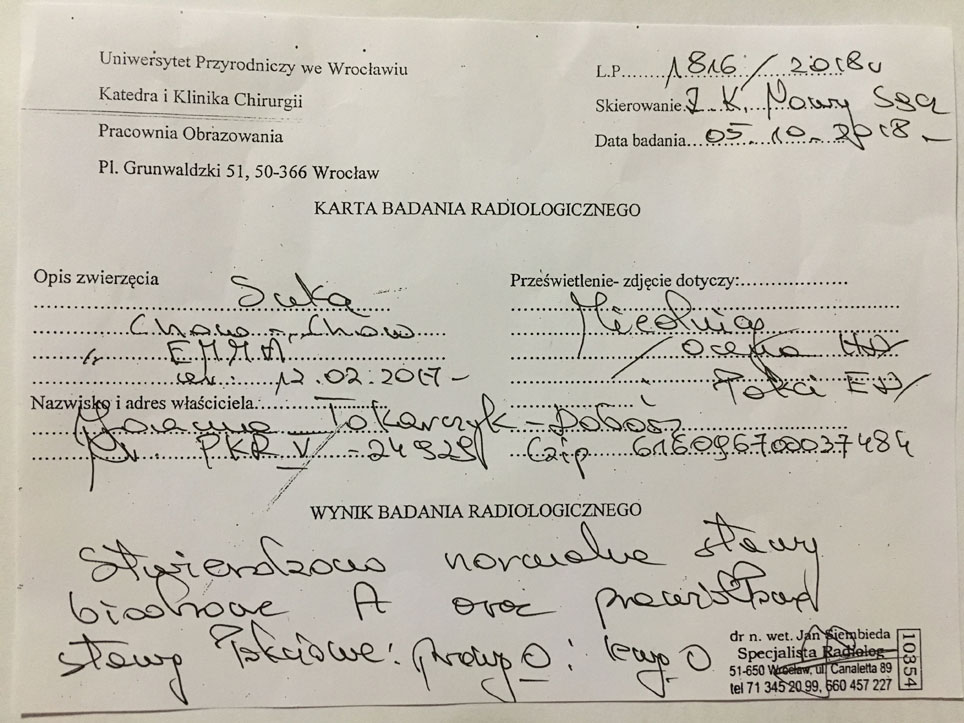 Uniwersytet Przyrodniczy we Wrocławiu
Katedra i Klinika Chirurgii
Pracownia Obrazowania
Pl. Grunwaldzki 51, 50-366 Wrocław
L.P. 1816/2018
Skierowanie Z.K. Nowy Sącz
Data badania 05.10.2018
KARTA BADANIA RADIOLOGICZNEGO
Opis zwierzęcia
Suka
Chow-Chow
EMMA
ur. 12.02.2017
Prześwietlenie- zdjęcie dotyczy:
Miednica
ocena HD
Łokci ED
Nazwisko i adres właściciela
Tokarczyk-Dobosz
PKR V-24929 Czip 616096700037484
WYNIK BADANIA RADIOLOGICZNEGO
Stwierdzono normalne stawy
biodrowe A oraz
stawy łokciowe: prawy 0 i lewy 0
dr n. wet. Jan Siembieda
Specjalista Radiolog
51-650 Wrocław, ul. Canaletta 89
tel 71 345 20 99, 660 457 227
10354